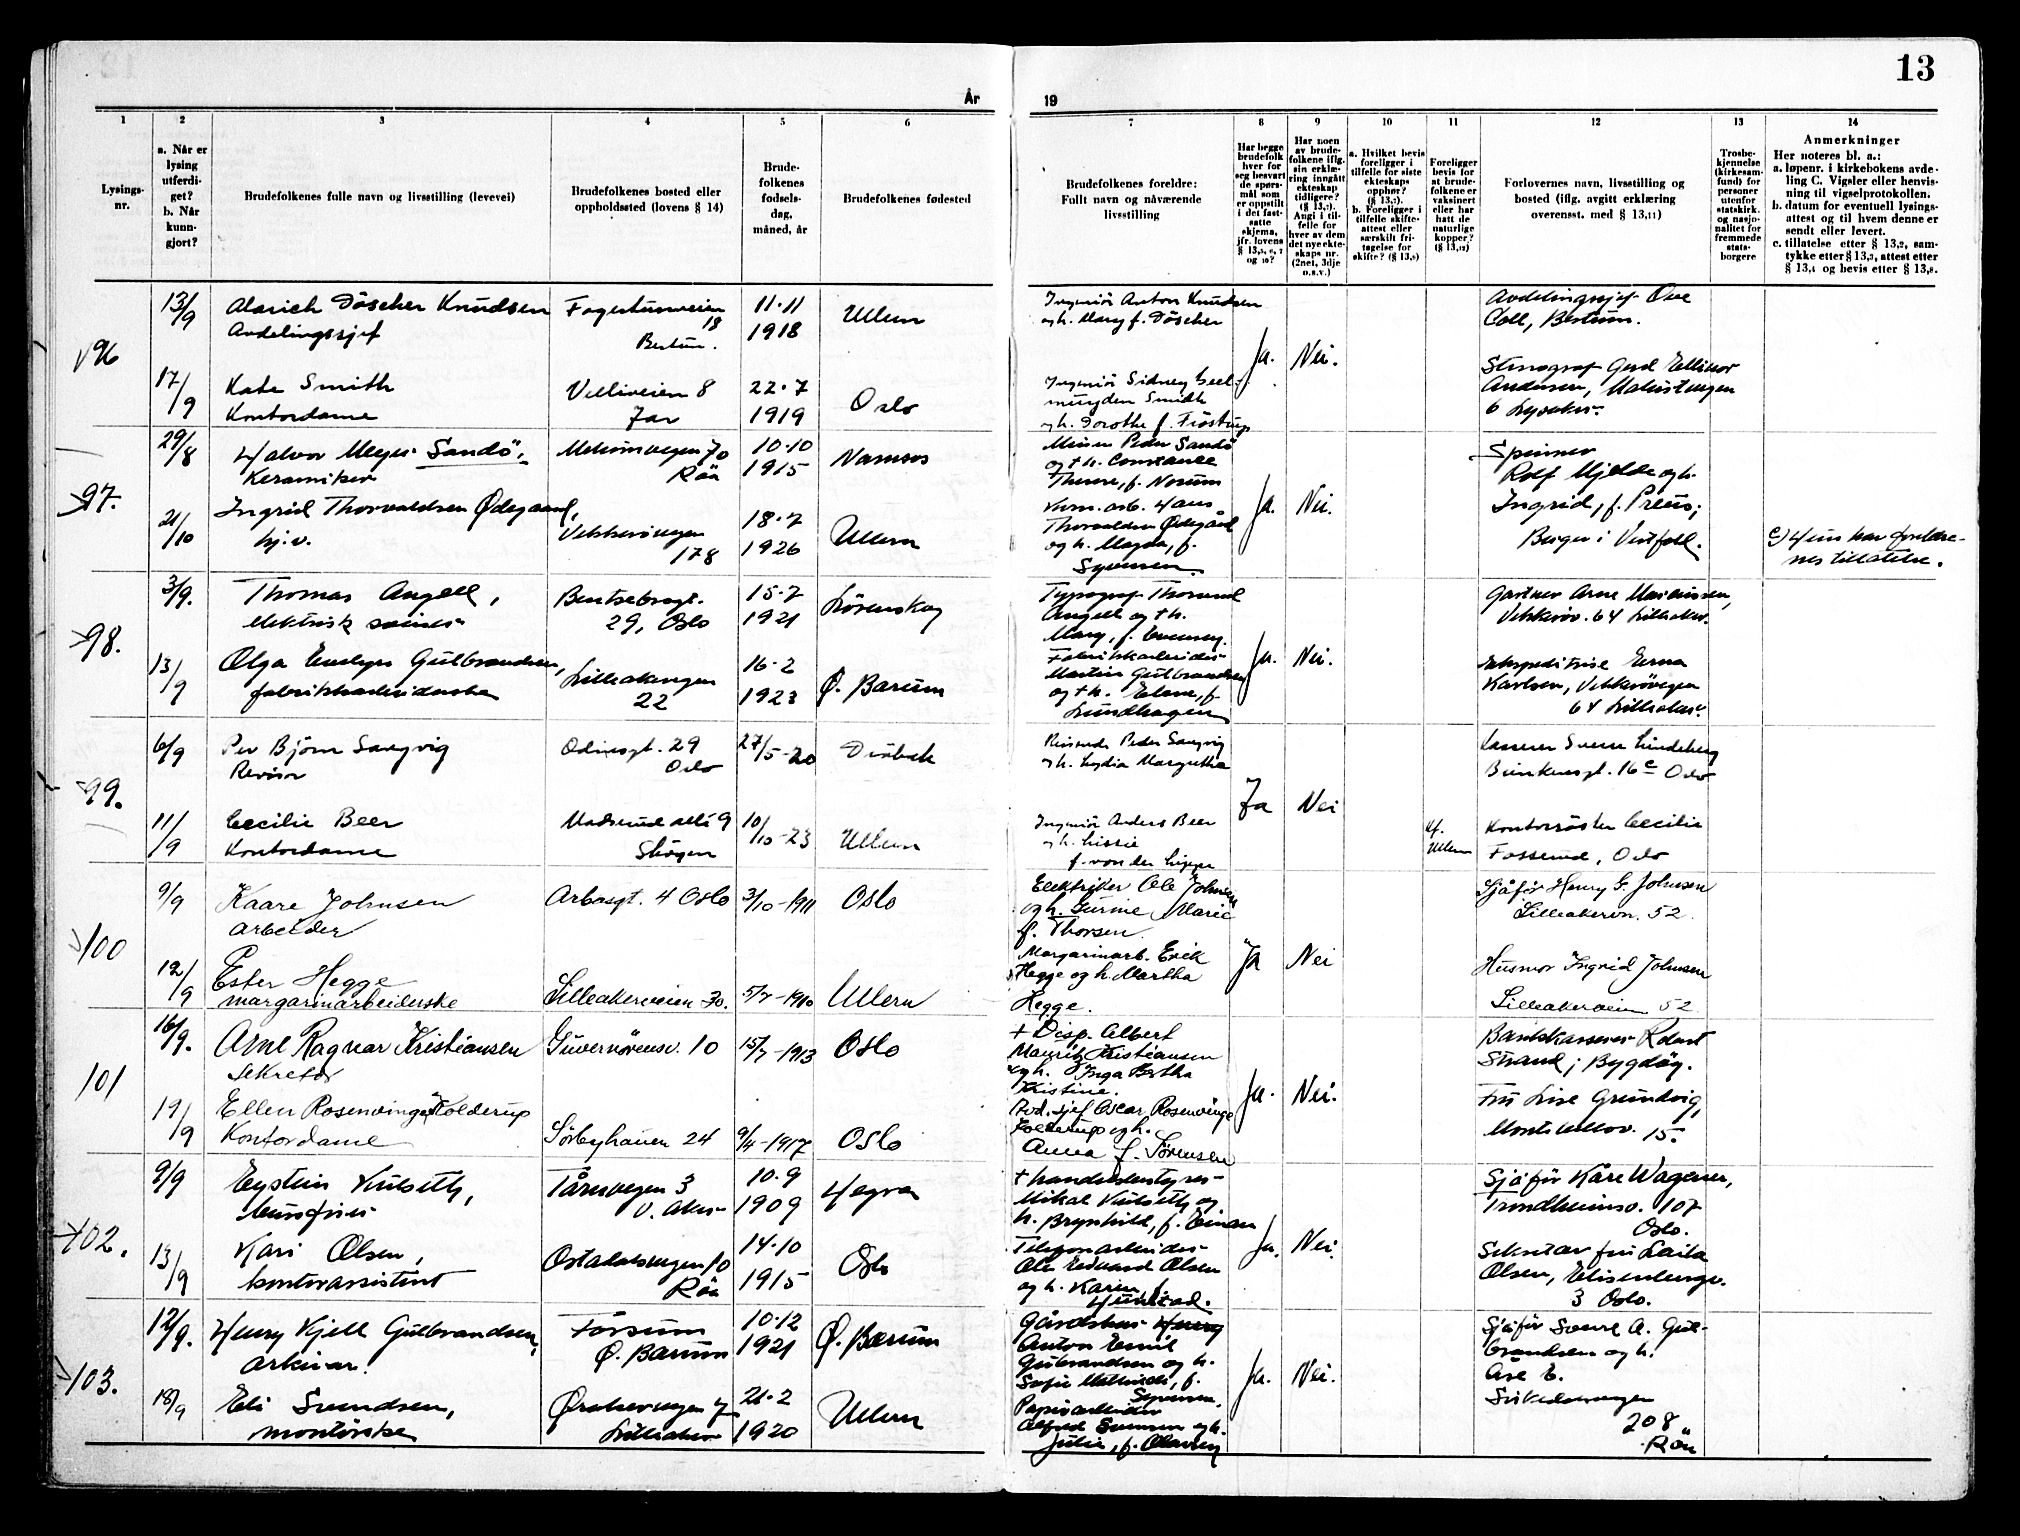 13
År
19
1
2
3
4
5
6
7
8
9
10
11
12
13
14
Lysings-
nr.
a. Når er
lysing
utferdi-
get?
b. Når
kunn-
gjort?
Brudefolkenes fulle navn og livsstilling (levevei)
Brudefolkenes bosted eller
oppholdssted (lovens § 14)
Brude-
folkenes
fødsels-
dag,
måned, år
Brudefolkenes fødested
Brudefolkenes foreldre:
Fullt navn og nåværende
livsstilling
Har begge
brudefolk
hver for
seg besvart
de spørs-
mål som
er oppstilt
i det fast-
satte
skjema,
jfr. lovens
Har noen
av brude-
folkene iflg.
sin erklæ-
ring inngått
ekteskap
tidligere?
Angi i til-
felle for
hver av dem
det nye ekte-
skaps nr.
(2net, 3dje
o.s.v.)
a. Hvilket bevis
foreligger i
tilfelle for siste
ekteskaps
opphør?
b. Foreligger i
tilfelle skifte-
attest eller
særskilt fri-
tagelse for
skifte?
Foreligger
bevis for
at brude-
folkene er
vaksinert
eller har
hatt de
naturlige
kopper?
Forlovernes navn, livsstilling og
bosted (iflg. avgitt erklæring
overensst. med § 13,11)
Trosbe-
kjennelse
(kirkesam-
fund) for
personer
utenfor
statskirk.
og nasjo-
nalitet for
fremmede
stats-
borgere
Anmerkninger
Her noteres bl. a.:
a. løpenr. i kirkebokens avde-
ling C. Vigsler eller henvis-
ning til vigselprotokollen.
b. datum for eventuell lysings-
attest og til hvem denne er
sendt eller levert.
c. tillatelse etter § 13,2, sam-
tykke etter § 13,3, attest etter
§ 13,4 og bevis etter § 13,8.
96
13/9 Alarich Döscher Knudsen
Avdelingssjef
Fagertunveien
18
Bestum.
11.11
1918
Ullern
Ingeniör Anton Knudsen
og h. Mary f. Döscher
Ja. Nei.
Avdelingssjef Ove
Coll, Bestum.
17/9 Kate Smith
Kontordame
Velliveien 8
Jar
22.7
1919
Oslo
Ingeniör Sidney
Smith
og h. Dorothe f. Fröstrup
Stenograf Gerd Ellinor
Andersen,
6 Lysaker.
97.
29/8 Halvor Meyer Sandö,
Keramiker
70
Röa
10.10
1915
Namsos
Peder Sandö
og + h. Constance
Therese, f. Norum
Ja. Nei.
Rolf Mjelde og h.
Ingrid, f. Preus,
Berger i Vestfold.
21/10 Ingrid Thorvaldsen Ødegaard,
hj.v.
Vekkerövegen
178
18.7
1926
Ullern
Kom. arb. Hans
Thorvaldsen Ødegård
og h. Magda, f.
c) Hun har foreldre-
nes tillatelse.
98.
3/9. Thomas Angell,
elektrisk
Bentsebrogt.
29, Oslo
15.7
1921
Lörenskog
Typograf
Angell og + h.
Mary, f. Evensen.
Ja. Nei.
Gartner Arne
Vekkeröv. 64 Lilleaker.
13/9 Olga Evelyn Gulbrandsen,
fabrikkarbeiderske
Lilleakervegen
22
16.2
1923
Ø. Bærum
Fabrikkarbeider
Martin Gulbrandsen
og + h. f.
Lundhagen
Ekspeditrise Erna
Karlsen, Vekkerövegen
64 Lilleaker.
99.
6/9 Per Björn Sangvig
Revisor
Odinsgt. 29
Oslo
27/5-20
Dröbak
Peder Sangvig
og h. Lydia Margretha
Ja Nei
Kasserer Svenn Lindeberg
16c Oslo
11/9 Cecilie Beer
Kontordame
Madserud allé 9
Sköyen
10/10-23
Ullern
Ingeniör Anders Beer
og h. Lissie
f. von der Lippe
Kf.
Ullern
Cecilie
Fosserud, Oslo
100
9/9 Kaare Johnsen
Arbeider
Arbosgt. 4 Oslo
3/10-1911
Oslo
Elektriker Ole Johnsen
og h. Gurine Marie
f. Thorsen.
Ja Nei
Sjåför Henry G. Johnsen
Lilleakervn. 52
12/9 Ester Hegge
margarinarbeiderske
Lilleakerveien 30.
5/7-1910
Ullern
Margarinarb. Erik
Hegge og h. Martha
Hegge.
Husmor Ingrid Johnsen
Lilleakerveien 52
101
16/9. Arne Ragnar Kristiansen
Sekretær
Guvernörensv. 10
15/7-1913
Oslo
+ Disp. Albert
Mauritz Kristiansen
og h. Inga Bertha
Kristine.
Ja. Nei.
Bankkasserer
Strand, Bygdöy.
19/9 Ellen Rosenvinge Kolderup
Kontordame
Sörbyhaugen 24
9/4-1917
Oslo
Avd. sjef Oscar Rosenvinge
Kolderup og h.
Anna f. Sörensen
Fru Lise Grundvig,
15.
102.
9/9 Eystein Kulseth,
Tårnvegen 3
V. Aker
10.9
1909
Hegra
Mikal Kulseth og
h. Brynhild, f. Einan
Ja. Nei.
Sjåför Kåre Wagener,
Trondheimsv. 107
Oslo.
13/9 Kari Olsen,
kontorassistent
Ostadalsvegen 10
Röa
14.10
1915
Oslo
Telefonarbeider
Ole Edvard Olsen
og h. Karen f.
Hunstad.
Sekretær fru Laila
Olsen,
3 Oslo.
103.
12/9. Henry Kjell Gulbrandsen,
arkivar.
Ø. Bærum
10.12
1921
Ø. Bærum
Anton Emil
Gulbrandsen og h.
Sofie Mathilde, f.
Ja. Nei.
Sjåför A. Gul-
brandsen og h.
Åse E.
Sörkedalsvegen
208
Röa
18/9 Eli Svendsen,
montörske
Ørakervegen 7
Lilleaker
21.2
1920
Ullern
Papirarbeider
Alfred Svensen og h.
Julie, f. Olavsen